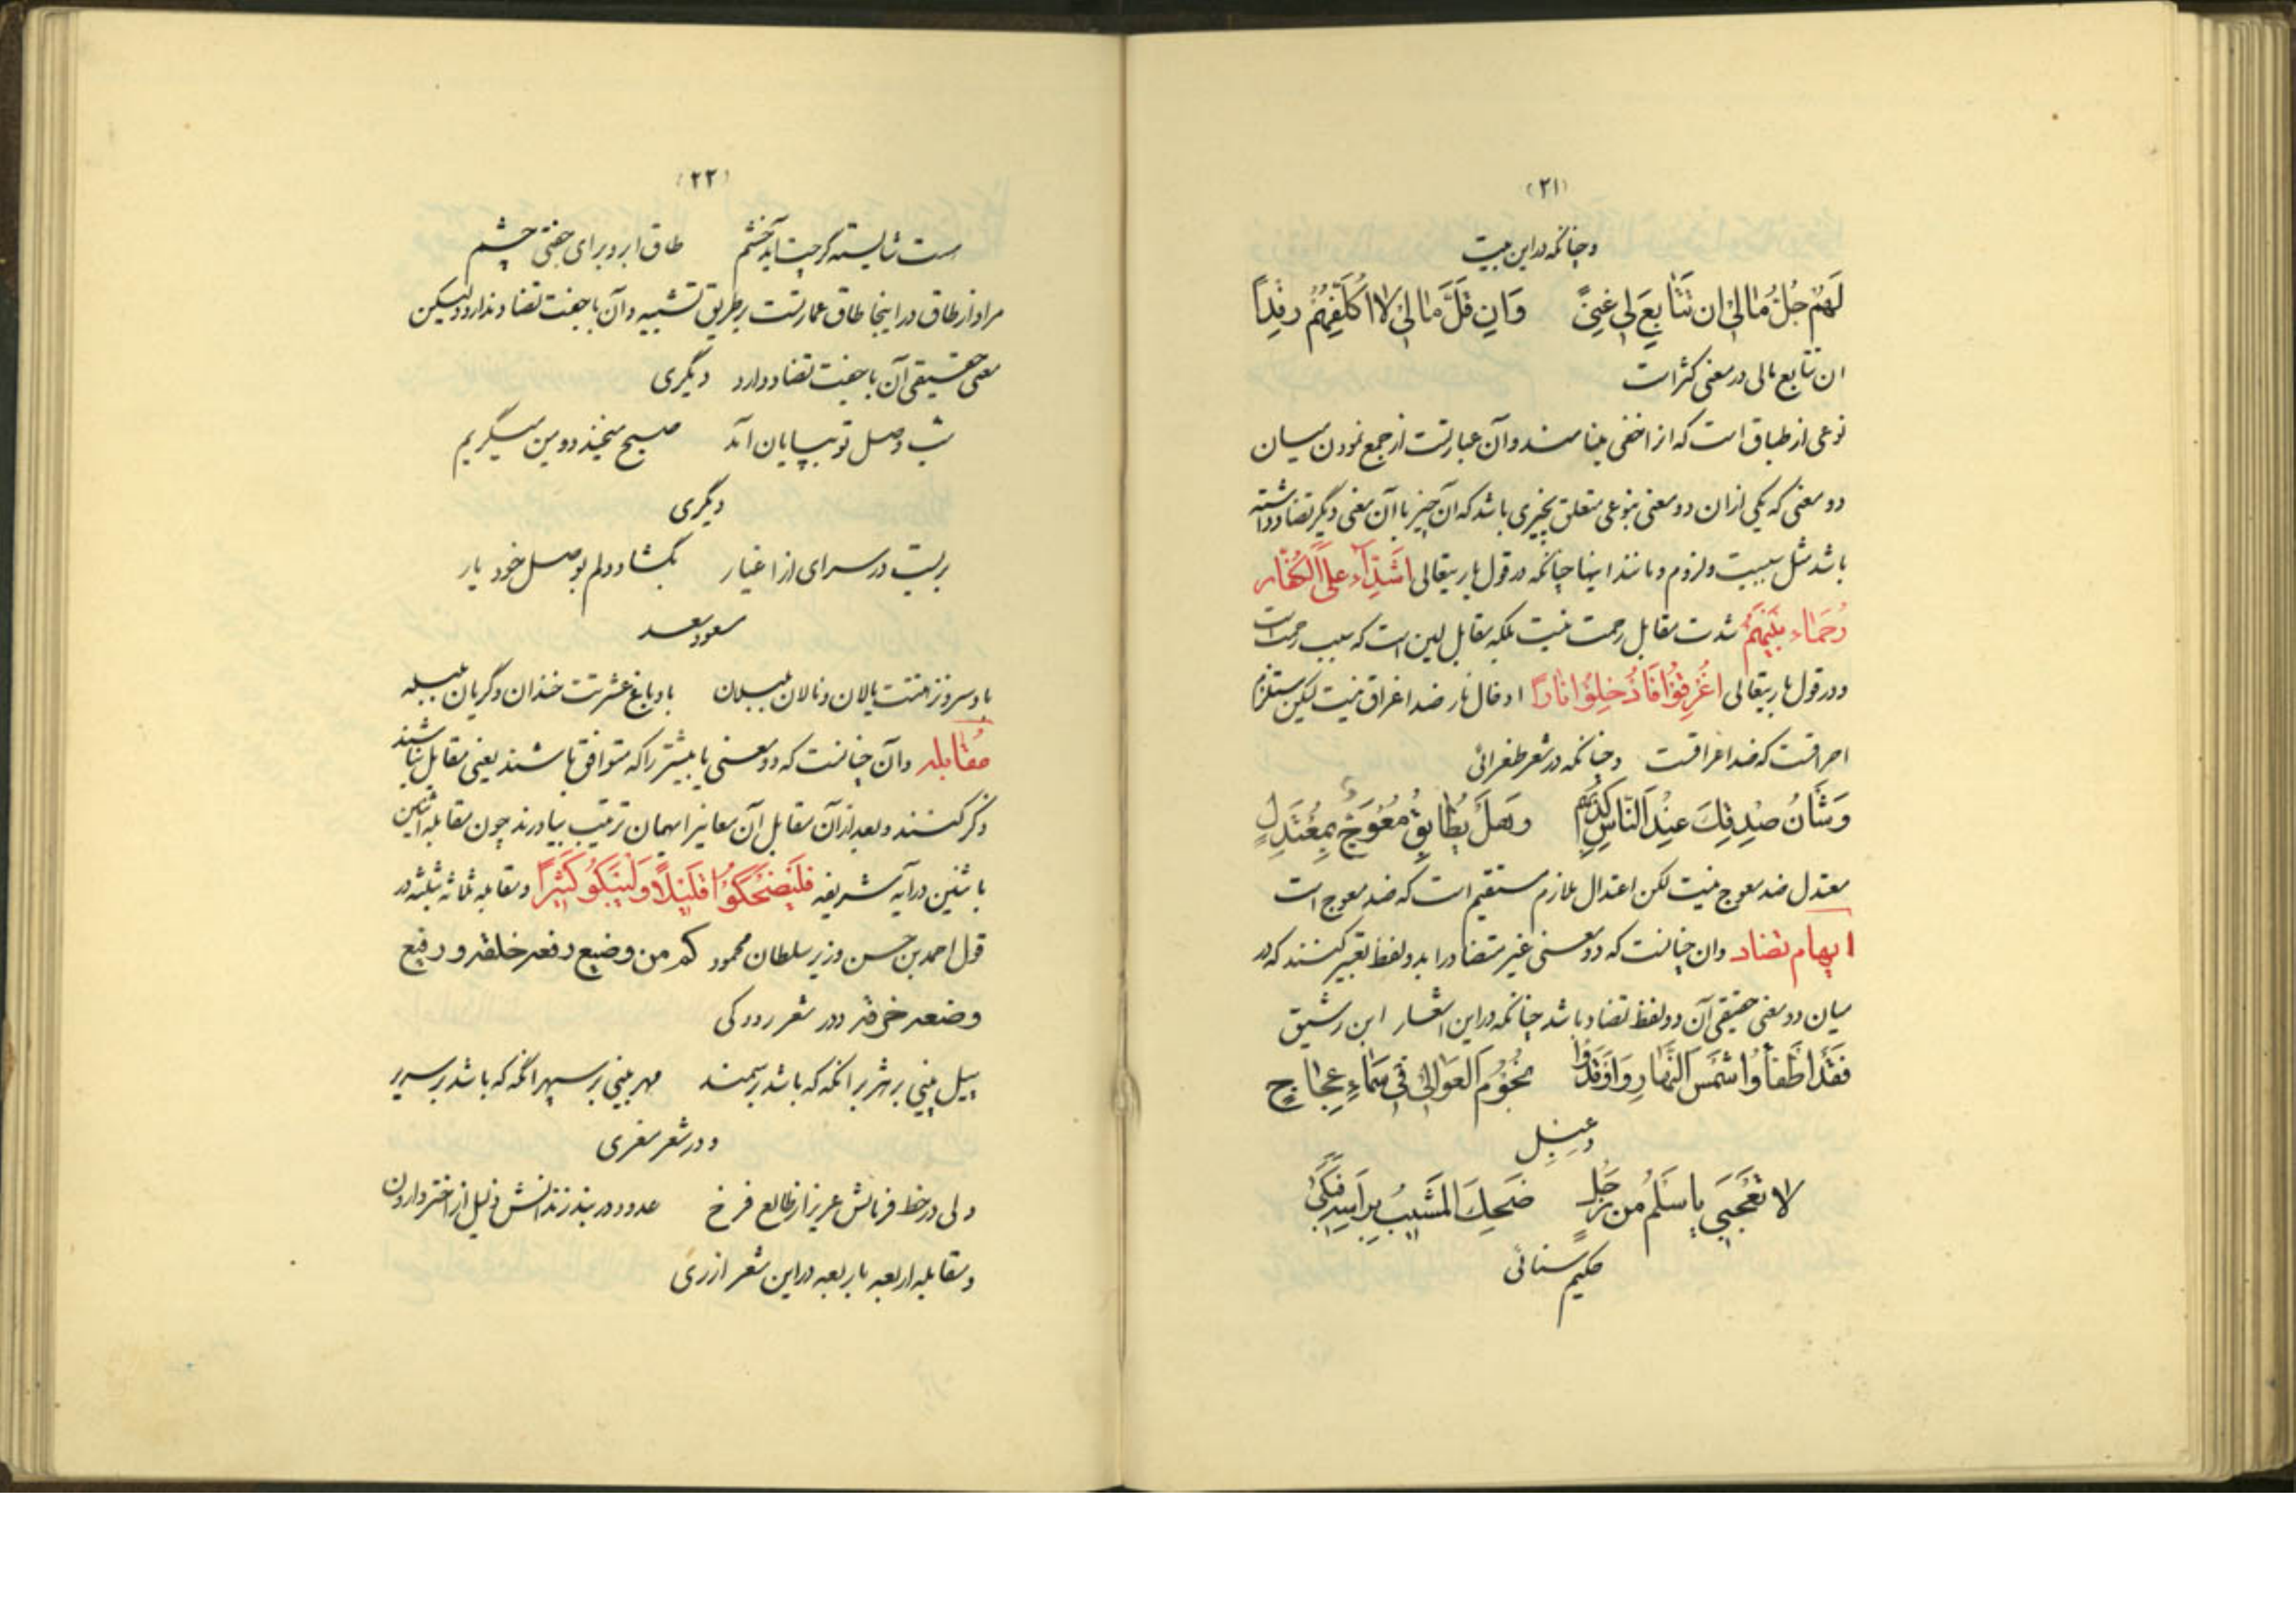 (۲۱)
و چنانکه در این بیت
لَهُمْ جُلُّ مٰالی اِن تَتٰابَعَ لی غِنیً وَاِن قَلَّ مٰالی لا اُکَلِّفْهُمُ رِفْداً
ان تتابع مالی در معنی کثر است
نوعی از طباق است که از اخفی بلنا مند و آن عبارتست از جمع نمودن میان
دو معنی که یکی از ان دو معنی بنوعی متعلق بچیزی باشد که آن چیز با آن معنی دیگر تضاد داشته
باشد مثل سببیت و لزوم و مانند اینها چنانکه در قول باریتعالی اَشِدّآءُ عَلَی الکُفّٰار
رُحَمٰاء بَیْنَهُمْ شدت مقابل رحمت نیست بلکه مقابل لین است که سبب رحمت است
و در قول باریتعالی اُغْرِقُوا فَاُدْخِلُوا نٰاراً ادخال نار ضد اغراق نیست لیکن مستلزم
احراقست که ضد اغراقست و چنانکه در شعر طغرائی
وَ شَانُ صِدْقِكَ عِنْدَ النّٰاسِ کِذْبُهُمُ وَ هَلْ یُطٰابِقُ مُعْوَجٌّ بِمُعْتَدِلٍ
معتدل ضد معوج نیست لکن اعتدال ملازم مستقیم است که ضد معوج است
ایهام تضاد وان چنانست که دو معنی غیر متضاد را بدو لفظ تعبیر کنند که در
میان دو معنی حقیقی آن دو لفظ تضاد باشد چنانکه در این اشعار ابن رشیق
فَقَدْ اَطْفَاُوا شَمْسَ النَّهٰارِ وَاَوْقَدُوا نُجُومَ العَوٰالی فی سَمٰاءِ عَجٰاجِ
دِعْبِل
لا تَعْجَبی یا سَلْمُ مِن رَجُلٍ ضَحِكَ المَشیبُ بِرَاْسِهِ فَبَکیٰ
حکیم سنائی
(۲۲)
هست شایسته گرچت آید خشم طاق ابرو برای جفتی چشم
مراد از طاق در اینجا طاق عمارتست بر طریق تشبیه و آن با جفت تضاد ندارد ولیکن
معنی حقیقی آن با جفت تضاد دارد دیگری
شب وصل تو بپایان آمد صبح میخندد و من میگریم
دیگری
بر بست در سرای از اغیار بگشاد دلم بوصل خود یار
مسعود سعد
باد سرو نزهتت بالان و نالان بلبلان باد باغ عشرتت خندان و گریان بلبله
مُقٰابله وآن چنانست که دو معنی یا بیشتر را که متوافق باشند یعنی مقابل نباشند
ذکر کنند و بعد از آن مقابل آن معانیرا بهمان ترتیب بیاورند چون مقابله اثنین
باثنین در آیه شریفه فَلْیَضْحَکُوا قَلیلاً وَلْیَبْکُو کَثیراً و مقابله ثلاثه بثلثه در
قول احمد بن حسن وزیر سلطان محمود کم من وضیع رفعه خلقه و رفیع
وضعه خرقه و در شعر رودکی
پیل بینی بر هژبر انگه که باشد بر سمند مهر بینی بر سپهر انگه که باشد بر سریر
و در شعر مغزی
ولی در خط فرمانش عزیز از طالع فرخ عدو در بند زندانش ذلیل از اختر وارون
و مقابله اربعه باربعه در این شعر ازرقی